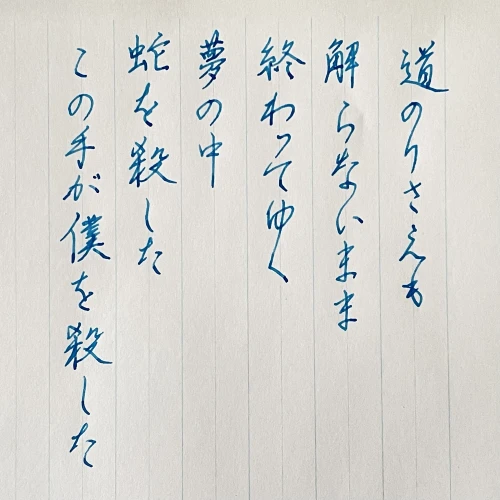 道のりさえも
解らないまま
終わってゆく
夢の中
蛇を殺した
この手が僕を殺した